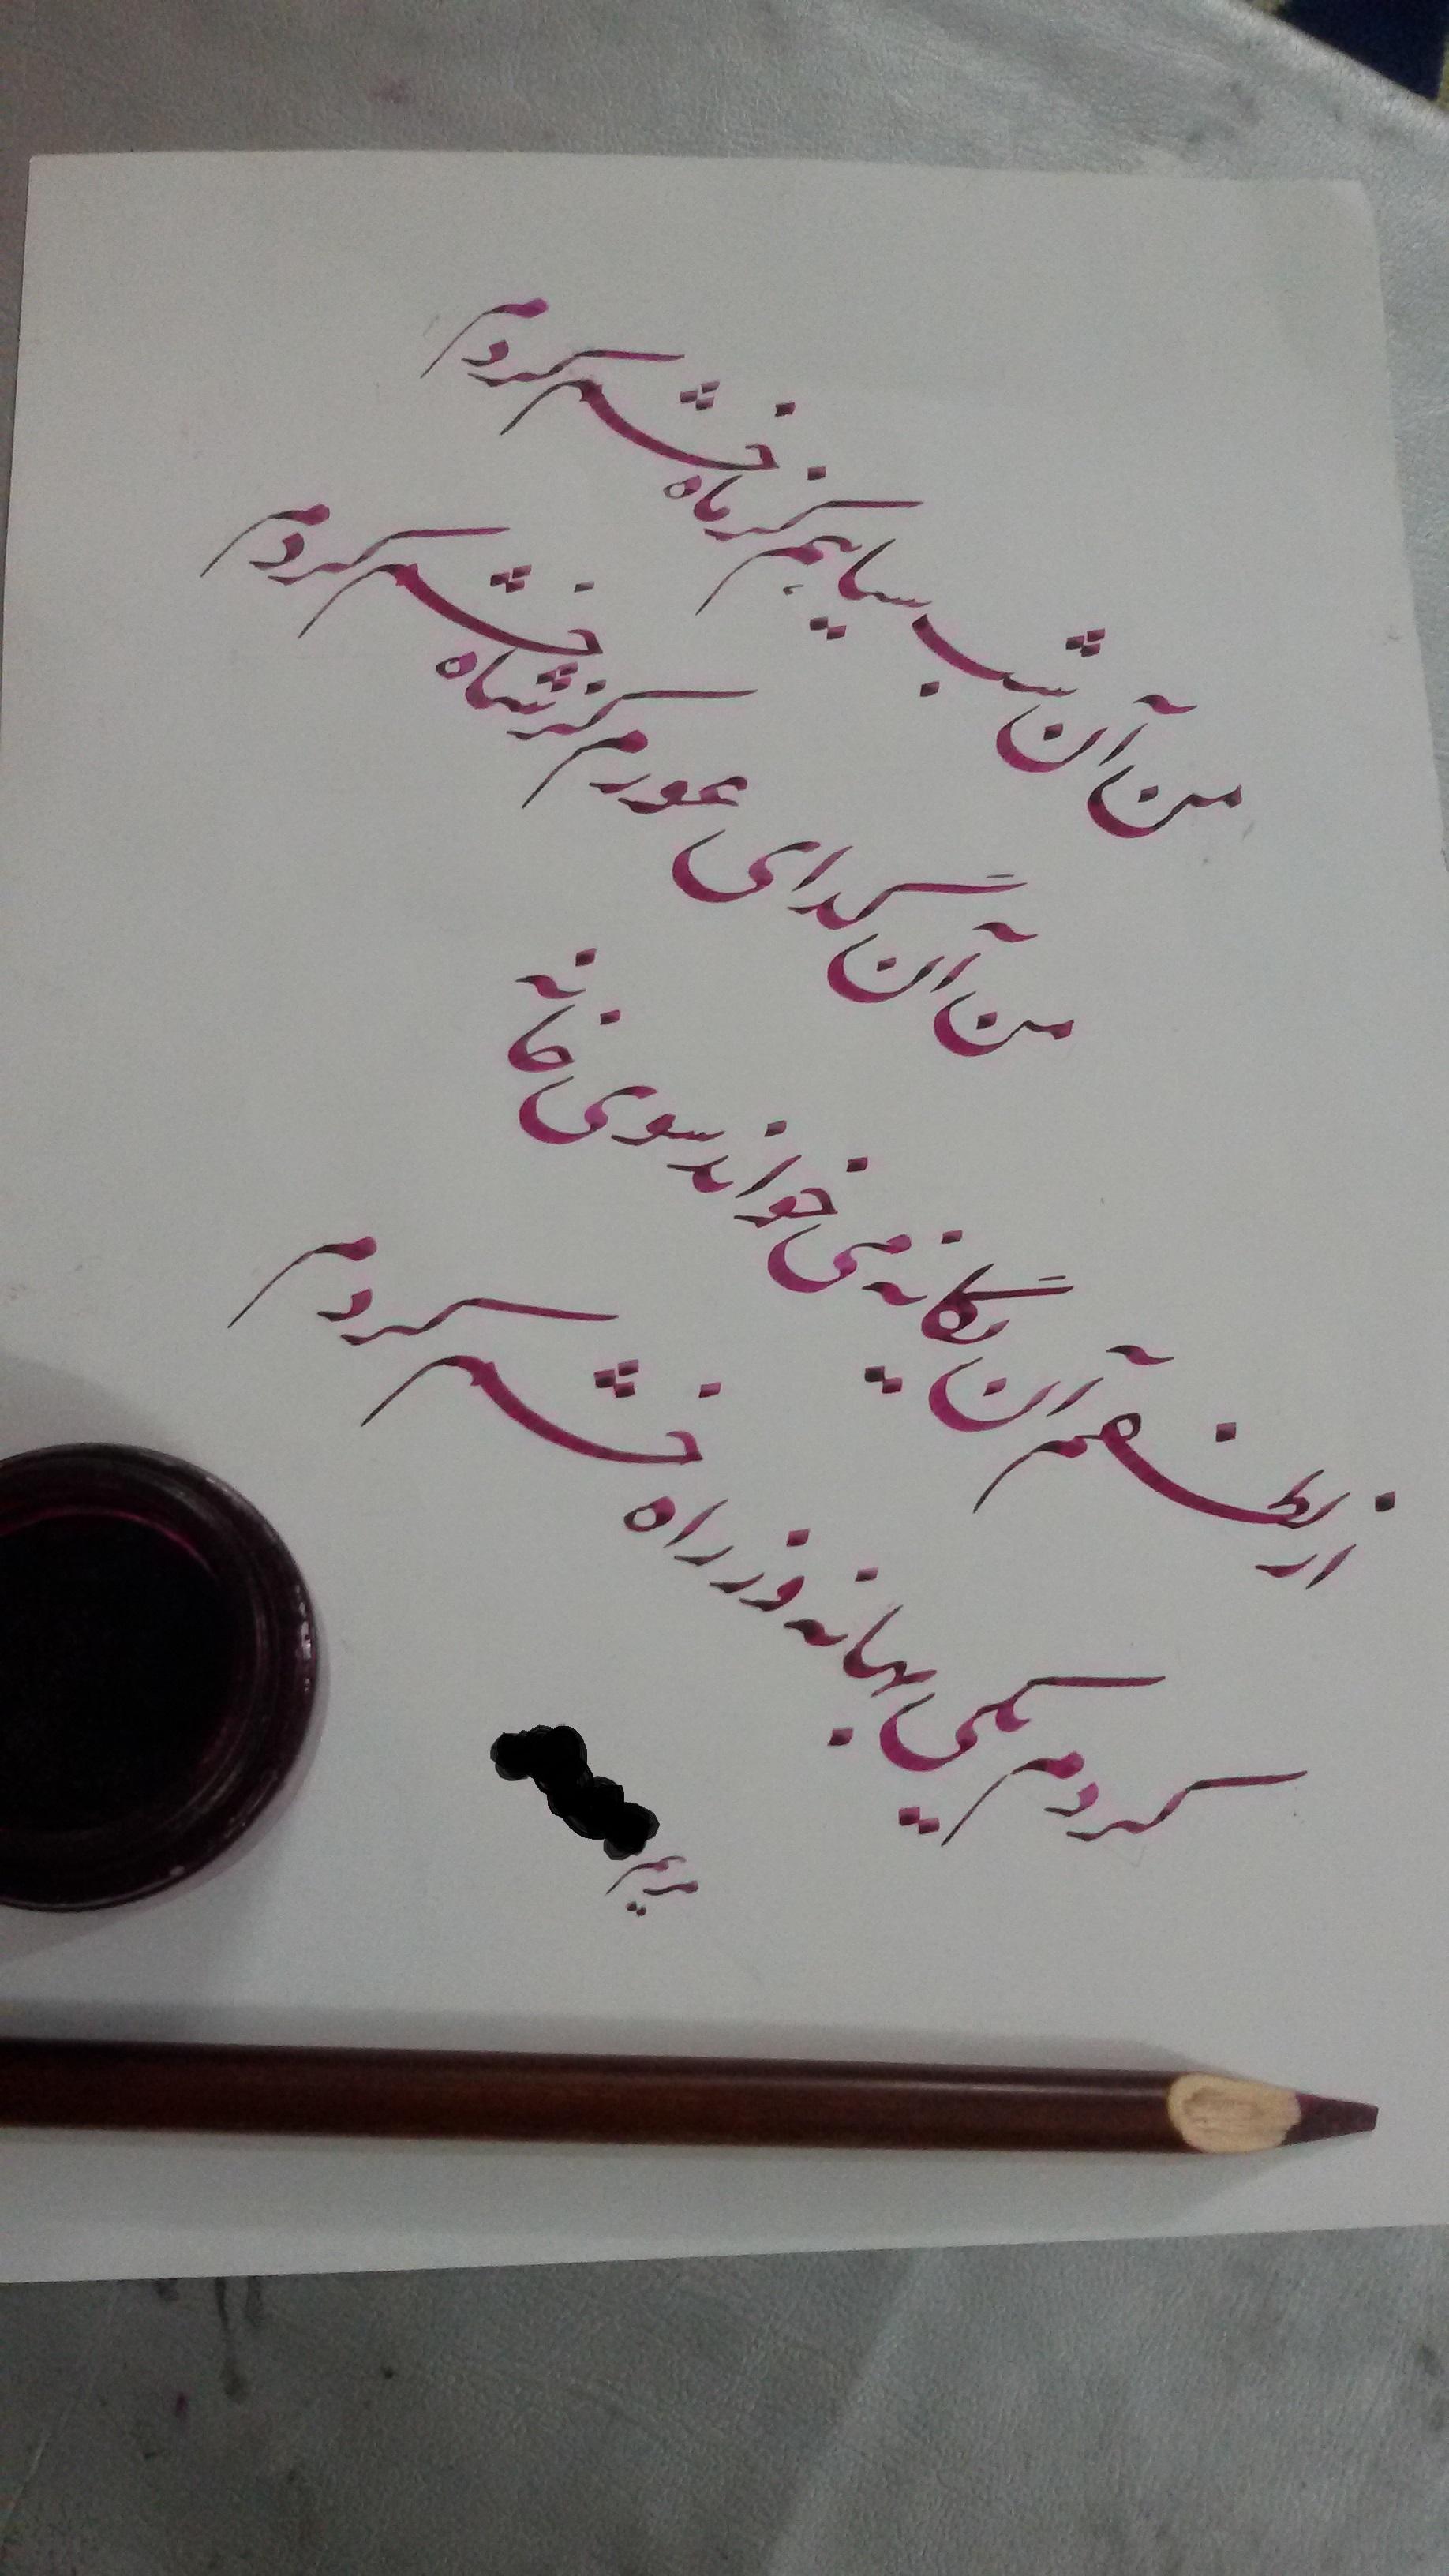 من آن شب سیاهم کز ماه خشم کردم
من آن گدای عورم کز شاه خشم کردم
از لطفم آن یگانه می خواند سوی خانه
کردم یکی بهانه وز راه خشم کردم
مریم